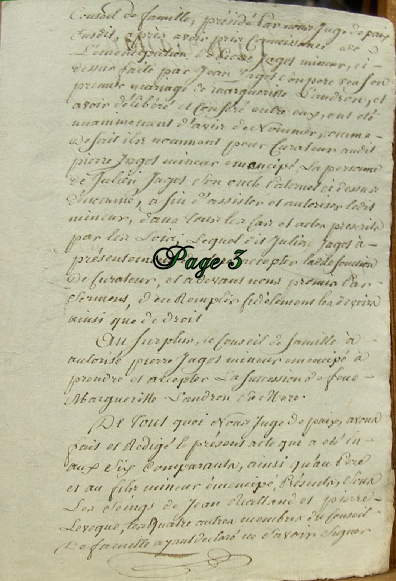 Conseil de famille, présidé par nous Juge de paix
susdit, après avoir pris connaissance de
L'émancipation de pierre Jagot mineur, ci
dessus faite par Jean Jagot son pere
premier mariage de marguerite Landron, et
avoir délibéré et conféré entre eux, ont été
unanimement d'avis de nommer, comme
de fait ils nomment pour Curateur audit
pierre Jagot mineur émancipé, La personne
de Julien Jagot son oncle Paternel ci dessus
dénommé, a fin d'assister et autoriser ledit
mineur, dans tous les Cas et actes prescrits
par les Loix, Lequel dit Julien Jagot a
Page 3
accepter ladite fonction
de Curateur, et a devant nous preté Par
Serment, d'en Remplir fidelement les devoirs
ainsi que de droit.
Au Surplus, le Conseil de famille a
autorisé pierre Jagot mineur émancipé à
prendre et accepter La succession de feue
Marguerite Landron sa Mere.
De Tout quoi Nous Juge de paix, avons
fait et Rédigé le présent acte qui a été lu
aux Six Comparants, ainsi qu'au Pere
et au fils mineur émancipé, Présents, Sous
Les Seings de Jean et pierre
Leveque, les quatre autres membres du Conseil
De famille ayant déclaré ne Savoir Signer